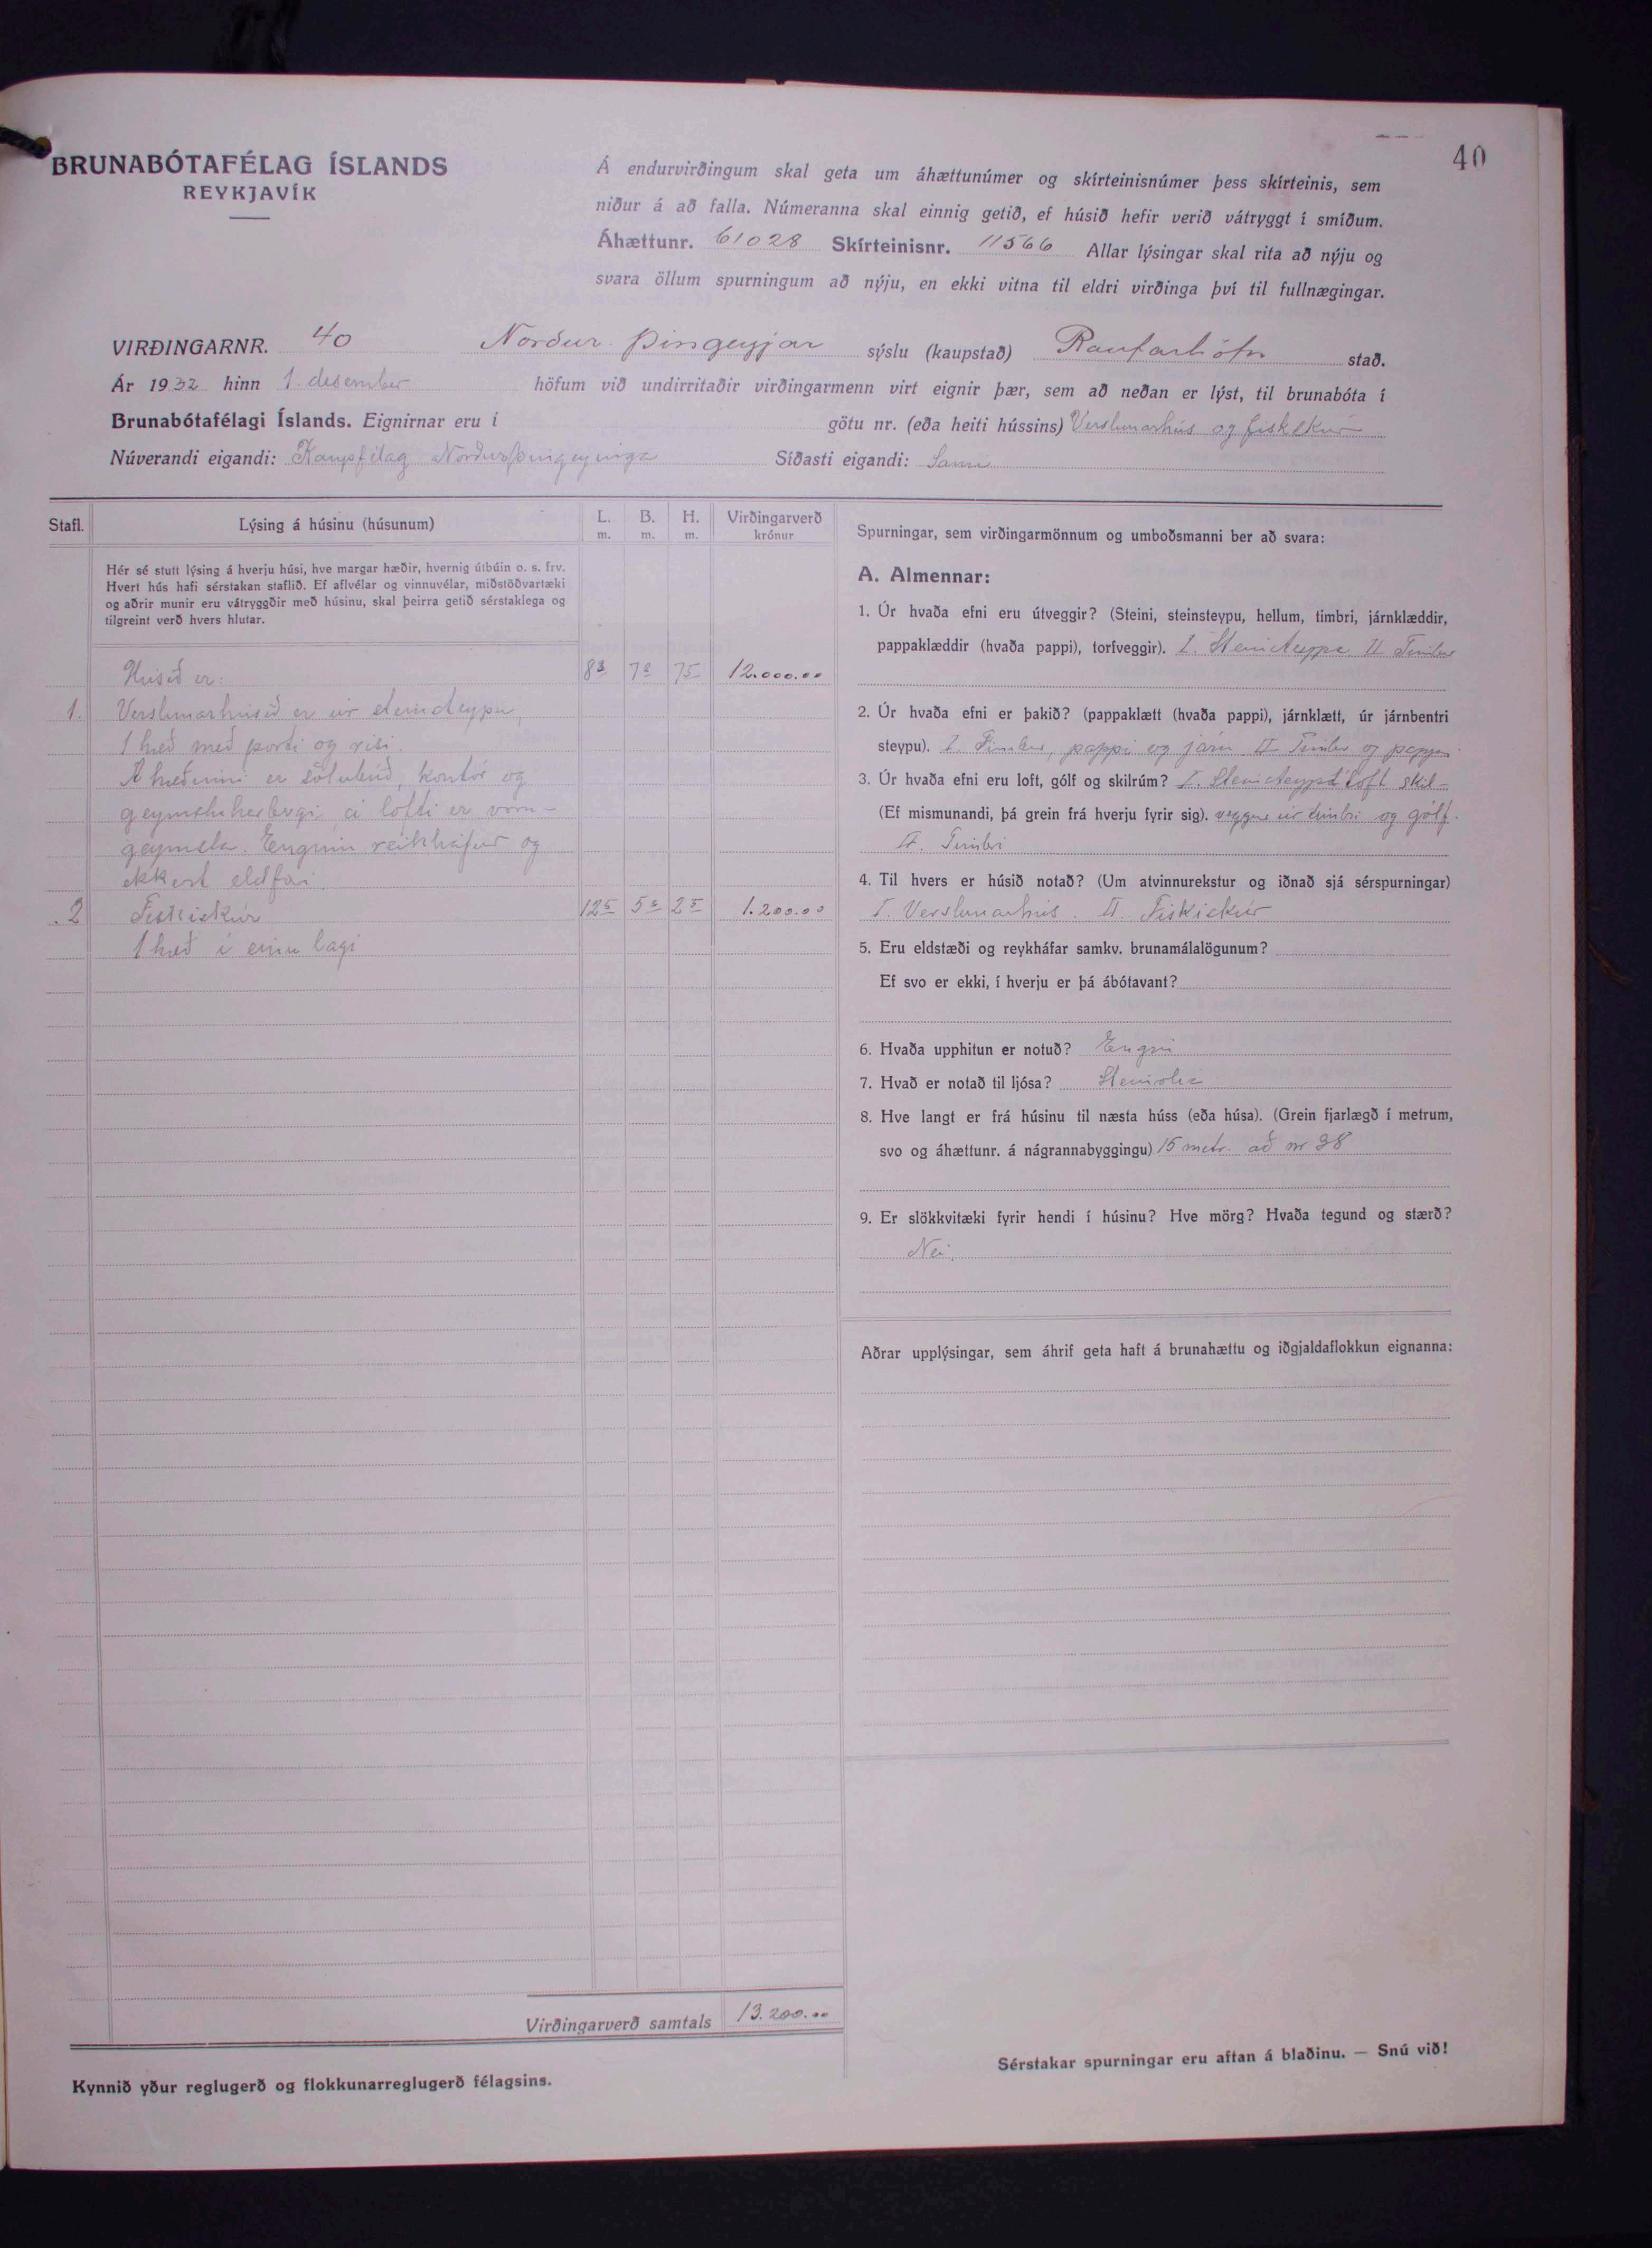 40
BRUNABÓTAFÉLAG ÍSLANDS
REYKJAVÍK
Á endurvirðingum skal geta um áhættunúmer og skírteinisnúmer þess skírteinis, sem
niður á að falla. Númeranna skal einnig getið, ef húsið hefir verið vátryggt í smíðum.
Áhættunr. 61028 Skírteinisnr. 11566 Allar lýsingar skal rita að nýju og
svara öllum spurningum að nýju, en ekki vitna til eldri virðinga því til fullnægingar.
VIRÐINGARNR. 40 Norður Þingeyjar sýslu (kaupstað) Raufarhöfn stað.
Ár 1932 hinn 1. desember höfum við undirritaðir virðingarmenn virt eignir þær, sem að neðan er lýst, til brunabóta í
Brunabótafélagi Íslands. Eignirnar eru í götu nr. (eða heiti hússins) Verslunarhús og fiskskúr
Núverandi eigandi: Kaupfélag Norðurþingeyinga Síðasti eigandi: Sami
Stafl. Lýsing á húsinu (húsunum) L. m. B. m. H. m. Virðingarverð krónur
Hér sé stutt lýsing á hverju húsi, hve margar hæðir, hvernig útbúin o. s. frv.
Hvert hús hafi sérstakan staflið. Ef aflvélar og vinnuvélar, miðstöðvartæki
og aðrir munir eru vátryggðir með húsinu, skal þeirra getið sérstaklega og
tilgreint verð hvers hlutar.
Húsið er: 8 3 7 2 7 5 12.000.00
1. Verslunarhúsið er úr steinsteypu,
1 hæð með porti og risi.
Á hæðinni er sölubúð, kontór og
geymsluherbergi, á lofti er vöru-
geymsla. Enginn reikháfur og
ekkert eldfæri.
2 Fiskiskúr 12 5 5 5 2 5 1.200.00
1 hæð í einu lagi
Virðingarverð samtals 13.200.00
Kynnið yður reglugerð og flokkunarreglugerð félagsins.
Spurningar, sem virðingarmönnum og umboðsmanni ber að svara:
A. Almennar:
1. Úr hvaða efni eru útveggir? (Steini, steinsteypu, hellum, timbri, járnklæddir,
pappaklæddir (hvaða pappi), torfveggir). I. Steinsteypa II Timbur
2. Úr hvaða efni er þakið? (pappaklætt (hvaða pappi), járnklætt, úr járnbentri
steypu). I. Timbur, pappi og járn II Timbur og pappi
3. Úr hvaða efni eru loft, gólf og skilrúm? I. Steinsteypt loft skil-
(Ef mismunandi, þá grein frá hverju fyrir sig). veggur úr timbri og gólf.
II. Timbri
4. Til hvers er húsið notað? (Um atvinnurekstur og iðnað sjá sérspurningar)
I. Verslunarhús. II. Fiskiskúr
5. Eru eldstæði og reykháfar samkv. brunamálalögunum?
Ef svo er ekki, í hverju er þá ábótavant?
6. Hvaða upphitun er notuð? Engin
7. Hvað er notað til ljósa? Steinolía
8. Hve langt er frá húsinu til næsta húss (eða húsa). (Grein fjarlægð í metrum,
svo og áhættunr. á nágrannabyggingu) 15 metr. að nr 38
9. Er slökkvitæki fyrir hendi í húsinu? Hve mörg? Hvaða tegund og stærð?
Nei.
Aðrar upplýsingar, sem áhrif geta haft á brunahættu og iðgjaldaflokkun eignanna:
Sérstakar spurningar eru aftan á blaðinu. — Snú við!